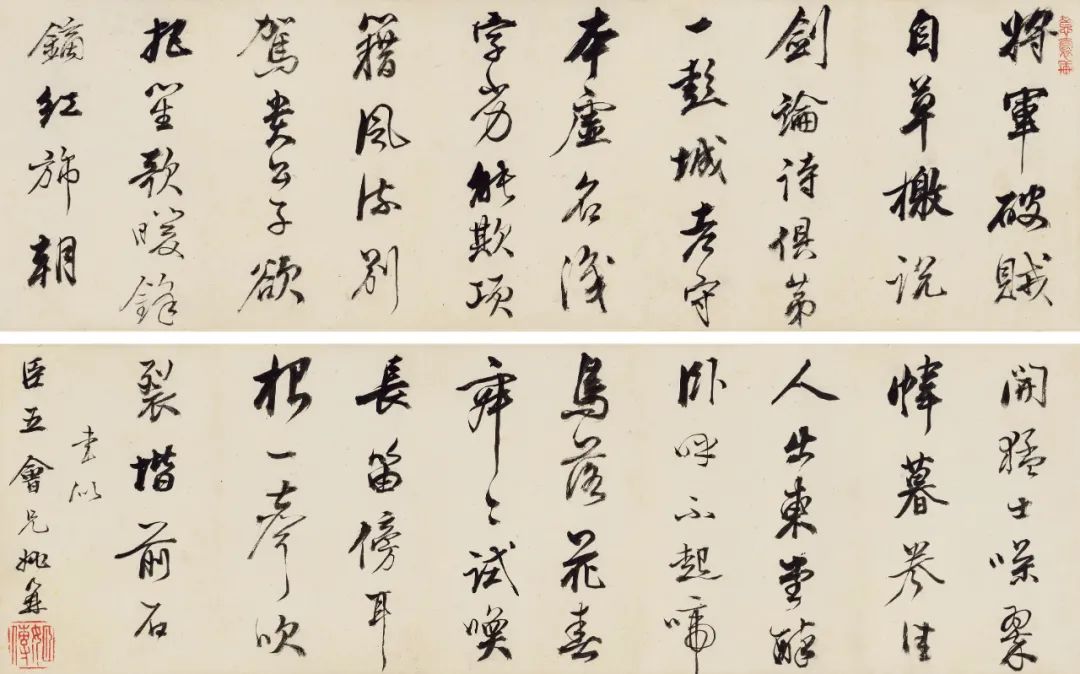 將軍破賊
自草檄説
劍論詩俱第
一彭城老守
本虛名識
字劣能欺項
籍風流别
駕貴公子欲
把笙歌暖鋒
鏑紅旆朝
開猛士噪翠
幃暮卷佳
人出東堂醉
卧呼不起啼
鳥落花春
寂〻試喚
長笛傍耳
根一聲吹
裂堦前石
書似
臣五會兄姚